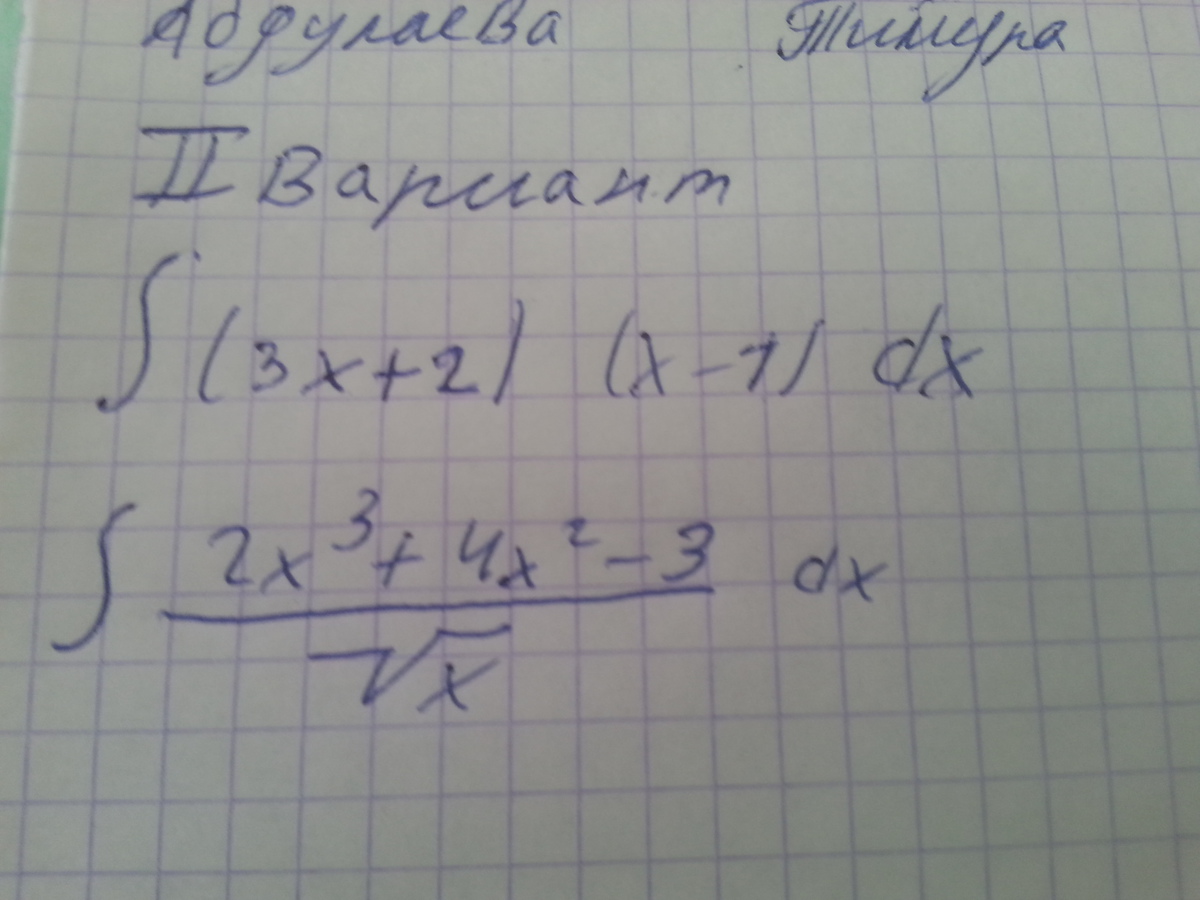 Абдулаева Тимура
II Вариант
∫ (3x+2) (x-1) dx
∫ (2x³+4x²-3)/√x dx